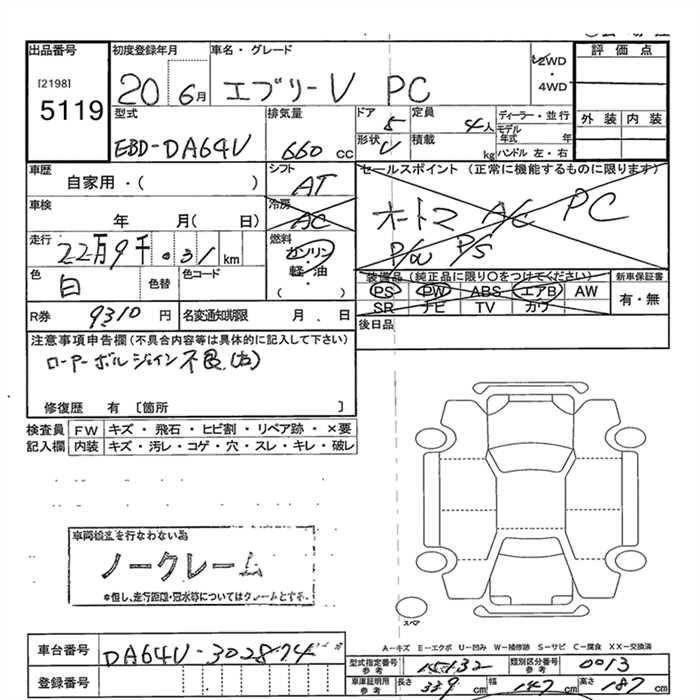 出品番号 初度登録年月 車名・グレード 評価点
[2198] 5119 20 6月 エブリーV PC 2WD・4WD
型式 排気量 ドア 定員 ディーラー・並行 外装 内装
EBD-DA64V 660cc 5 4人 モデル年式 年
形状 V 積載 kg ハンドル 左・右
車歴 シフト セールスポイント (正常に機能するものに限ります)
自家用・( ) AT オートマ A/C PC
車検 冷房 P/W PS
年 月( 日) AC
走行 燃料
22万9千031km ガソリン 軽・油 ・( )
色 色替 色コード 装備品(純正品に限り○をつけてください) 新車保証書
白 PS PW ABS エアB AW 有・無
SR ナビ TV カワ
R券 9310円 名変通知期限 月 日 後日品
注意事項申告欄(不具合内容等は具体的に記入して下さい)
ローアーボルジョイン不良(右)
修復歴 有 〔箇所 〕
検査員 FW キズ・飛石・ヒビ割・リペア跡・×要
記入欄 内装 キズ・汚レ・コゲ・穴・スレ・キレ・破レ
車両検査を行なわない為
ノークレーム
*但し、走行距離・冠水等についてはクレームとする。
スペア
A－キズ E－エクボ U－凹み W－補修跡 S－サビ C－腐食 XX－交換済
車台番号 DA64V-302874
登録番号
型式指定番号 参考 15132 類別区分番号 参考 0013
車庫証明用 参考 長さ 339cm 幅 147cm 高さ 187cm